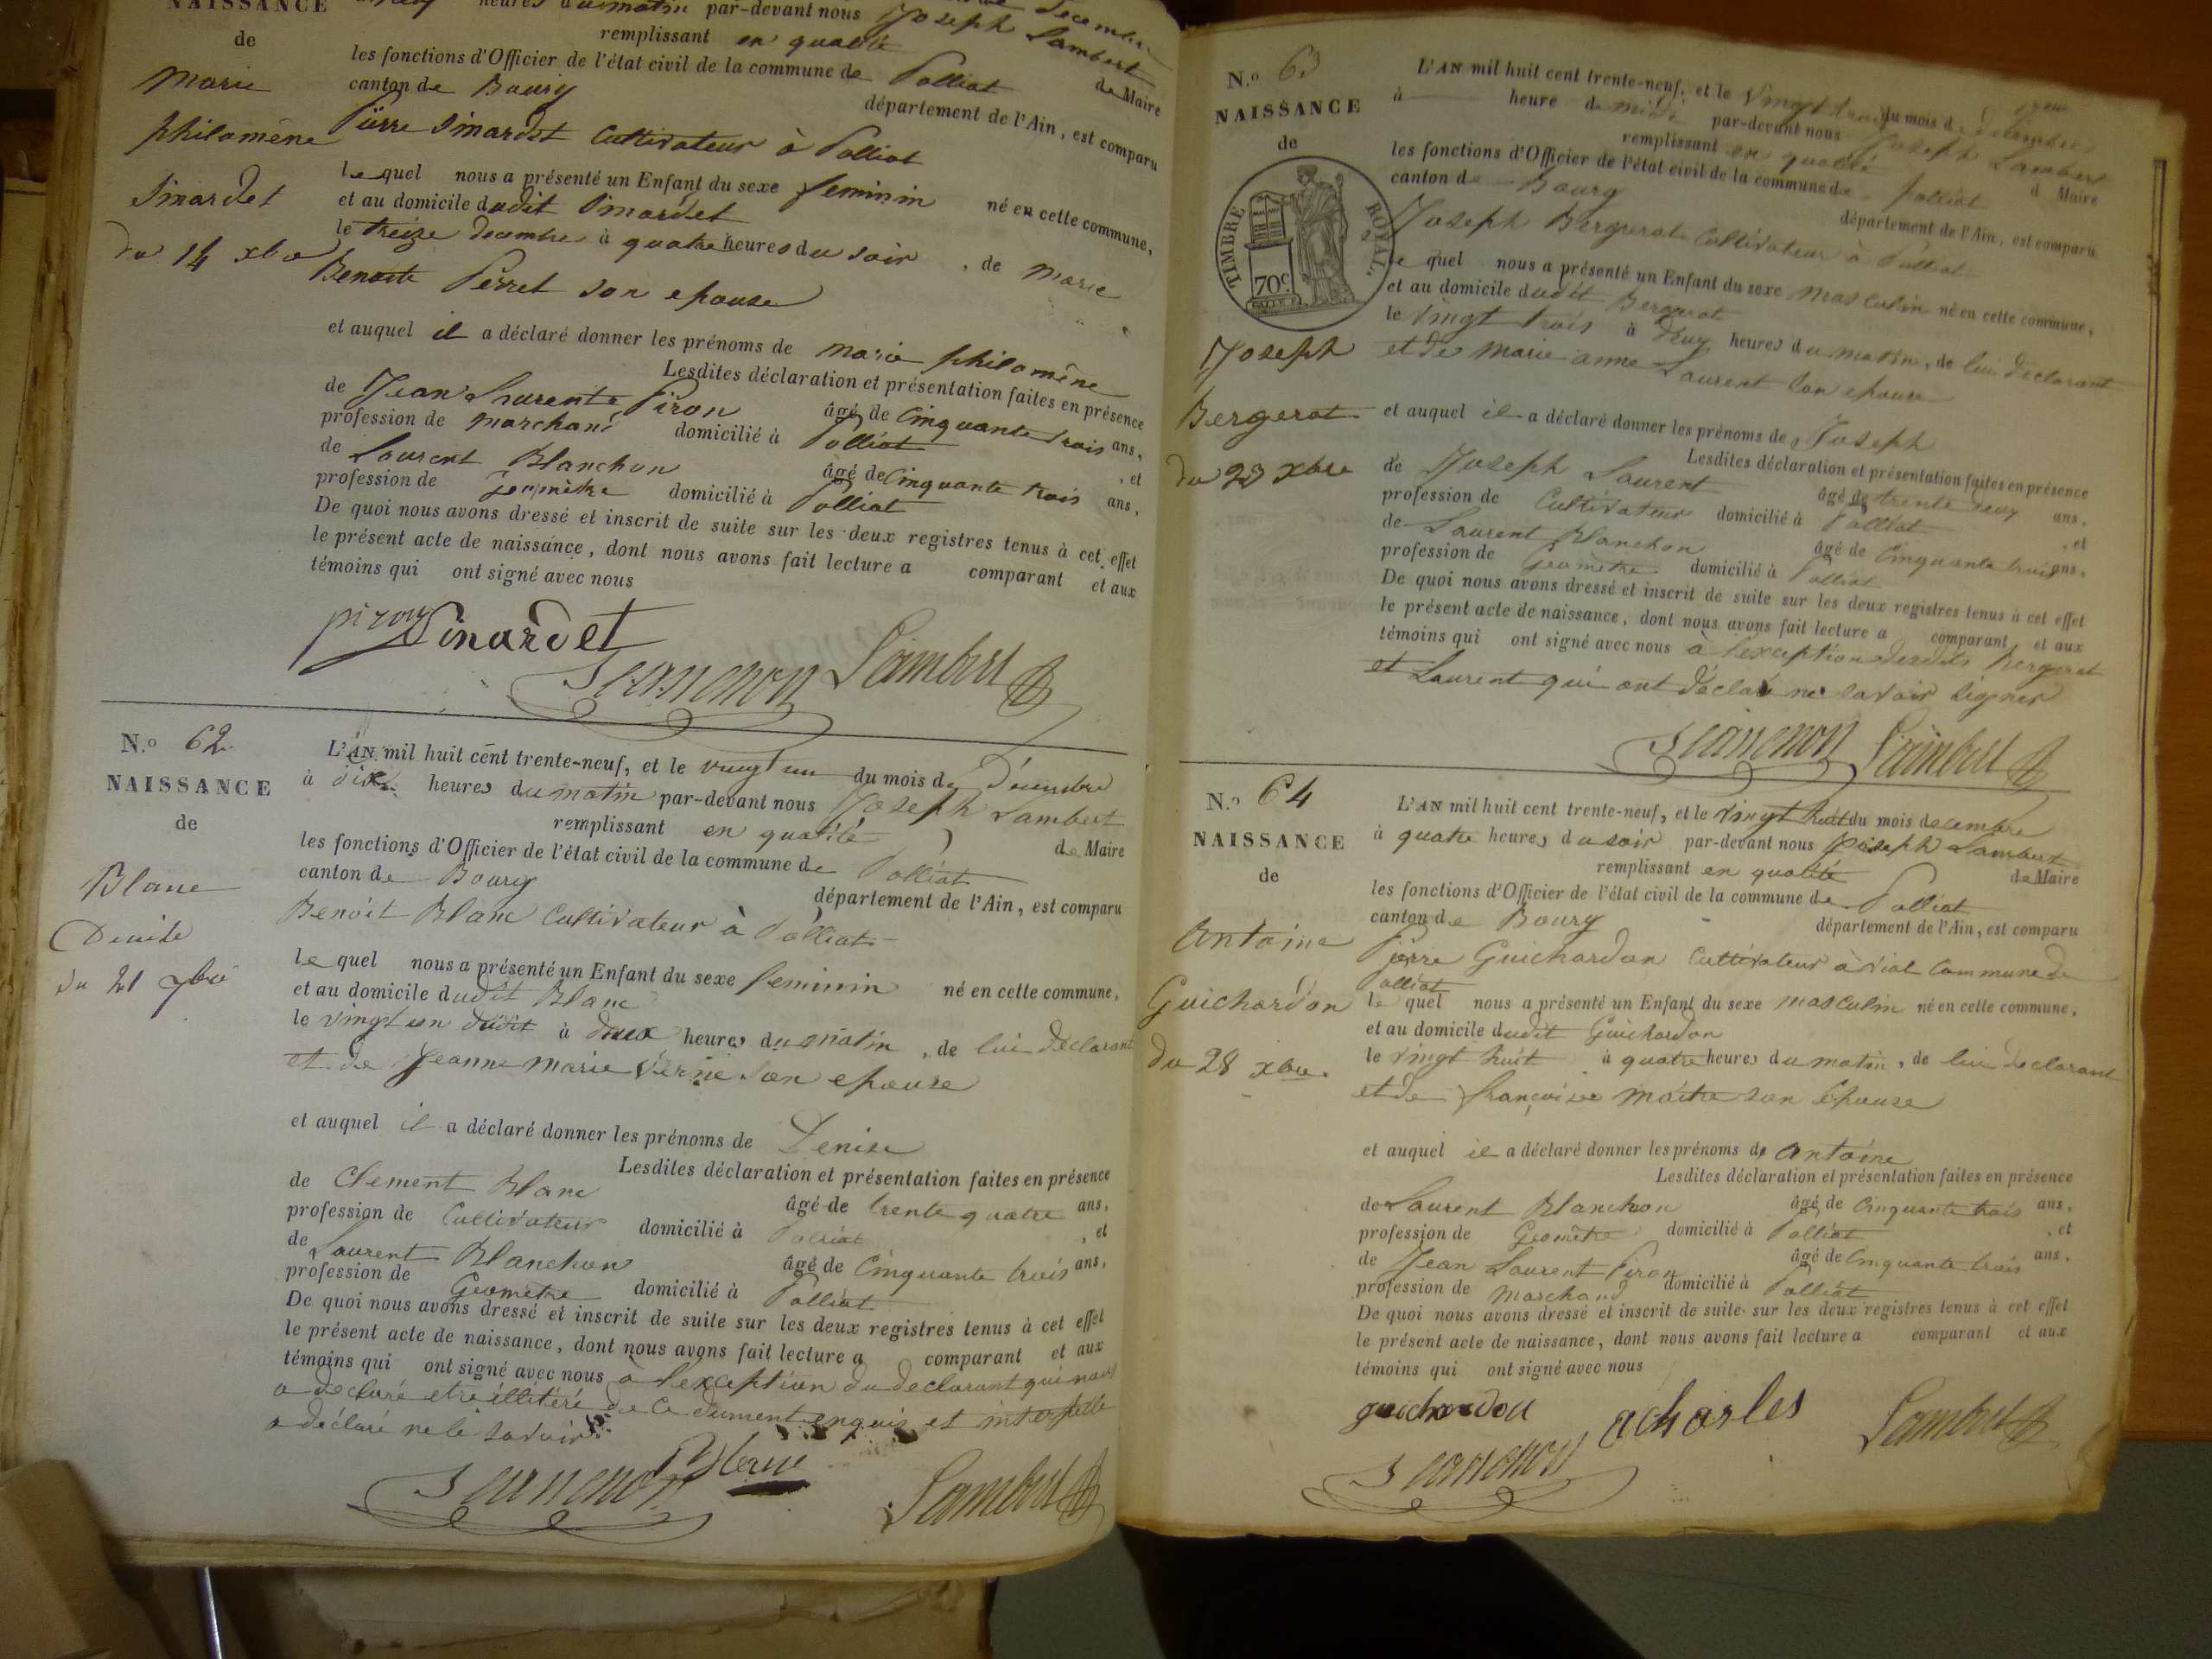 NAISSANCE
de
Marie
philomène
Sinardet
du 14 xbre
heures du matin par-devant nous Joseph Lambert
remplissant en qualité de Maire
les fonctions d'Officier de l'état civil de la commune de Polliat
canton de Bourg département de l'Ain, est comparu
Pierre Sinardet Cultivateur à Polliat
lequel nous a présenté un Enfant du sexe feminin né en cette commune,
et au domicile dudit Sinardet
le treize decembre à quatre heures du soir, de marie
Benoite Perret son epouse
et auquel il a déclaré donner les prénoms de marie philomène
Lesdites déclaration et présentation faites en présence
de Jean Laurent Piron âgé de Cinquante trois ans,
profession de marchand domicilié à Polliat, et
de Laurent Blanchon âgé de Cinquante trois ans,
profession de Geomètre domicilié à Polliat
De quoi nous avons dressé et inscrit de suite sur les deux registres tenus à cet effet
le présent acte de naissance, dont nous avons fait lecture a comparant et aux
témoins qui ont signé avec nous
piron Sinardet
Lambert
N.o 62
NAISSANCE
de
Blanc
Denise
du 21 xbre
L'AN mil huit cent trente-neuf, et le vingt un du mois de Décembre
à dix heures du matin par-devant nous Joseph Lambert
remplissant en qualité de Maire
les fonctions d'Officier de l'état civil de la commune de Polliat
canton de Bourg département de l'Ain, est comparu
Benoit Blanc Cultivateur à Polliat
lequel nous a présenté un Enfant du sexe feminin né en cette commune,
et au domicile dudit Blanc
le vingt un dudit à deux heures du matin, de lui déclarant
et de Jeanne Marie son epouse
et auquel il a déclaré donner les prénoms de Denise
Lesdites déclaration et présentation faites en présence
de Clement Blanc âgé de trente quatre ans,
profession de Cultivateur domicilié à Polliat, et
de Laurent Blanchon âgé de Cinquante trois ans,
profession de Geomètre domicilié à Polliat
De quoi nous avons dressé et inscrit de suite sur les deux registres tenus à cet effet
le présent acte de naissance, dont nous avons fait lecture a comparant et aux
témoins qui ont signé avec nous à l'exception du declarant qui nous
a déclaré etre illitéré de ce dument enquis et interpellé
a déclaré ne le savoir
Blanc
Lambert
N.o 63
NAISSANCE
de
TIMBRE ROYAL.
70c.
Joseph
Bergerot
du 23 xbre
L'AN mil huit cent trente-neuf, et le vingt trois du mois de decembre
à heure de midi par-devant nous Joseph Lambert
remplissant en qualité d Maire
les fonctions d'Officier de l'état civil de la commune de Polliat
canton de Bourg département de l'Ain, est comparu
Joseph Bergerot Cultivateur à Polliat
lequel nous a présenté un Enfant du sexe masculin né en cette commune,
et au domicile dudit Bergerot
le vingt trois à deux heures du matin, de lui déclarant
et de marie anne Laurent son epouse
et auquel il a déclaré donner les prénoms de Joseph
Lesdites déclaration et présentation faites en présence
de Joseph Laurent âgé de trente deux ans,
profession de Cultivateur domicilié à Polliat, et
de Laurent Blanchon âgé de Cinquante trois ans,
profession de Géomètre domicilié à Polliat
De quoi nous avons dressé et inscrit de suite sur les deux registres tenus à cet effet
le présent acte de naissance, dont nous avons fait lecture a comparant et aux
témoins qui ont signé avec nous à l'exception desdits Bergerot
et Laurent qui ont déclaré ne savoir signer
Lambert
N.o 64
NAISSANCE
de
Antoine
Guichardon
du 28 xbre
L'AN mil huit cent trente-neuf, et le vingt huit du mois decembre
à quatre heures du soir par-devant nous Joseph Lambert
remplissant en qualité de Maire
les fonctions d'Officier de l'état civil de la commune de Polliat
canton de Bourg département de l'Ain, est comparu
Pierre Guichardon Cultivateur à Commune de
Polliat
lequel nous a présenté un Enfant du sexe masculin né en cette commune,
et au domicile dudit Guichardon
le vingt huit à quatre heures du matin, de lui declarant
et de françoise maitre son épouse
et auquel il a déclaré donner les prénoms de antoine
Lesdites déclaration et présentation faites en présence
de Laurent Blanchon âgé de Cinquante trois ans,
profession de Géomètre domicilié à Polliat, et
de Jean Laurent Piron âgé de Cinquante trois ans,
profession de Marchand domicilié à Polliat
De quoi nous avons dressé et inscrit de suite sur les deux registres tenus à cet effet
le présent acte de naissance, dont nous avons fait lecture a comparant et aux
témoins qui ont signé avec nous
guichardon acharles Lambert